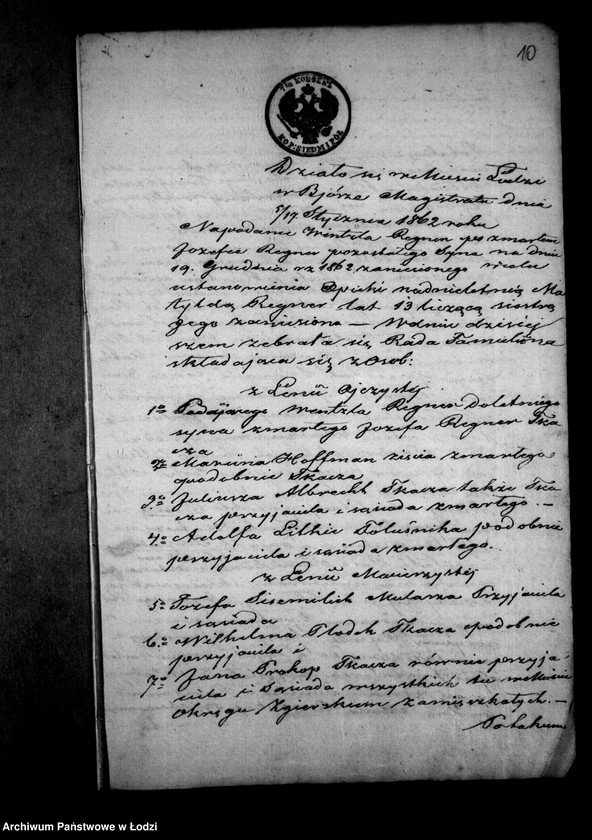 10
7½ KOPSEKЪ
KOP: SIEDM I PÓŁ
Działo się w Mieście Łodzi
w Bjórze Magistratu dnia
5/17 Stycznia 1862 roku
Na podanie Wentzla Regner po zmarłem
Józefie Regner pozostałego Syna na dniu
19. Grudnia rz 1862 zaniesionego wcelu
ustanowienia Opieki nad nieletnią Ma
tyldą Regner lat 13 liczącą siostrą
jego zaniesiona — W dniu dzisiej
szem zebrała się Rada Familijna
składająca się z Osób:
z Lenii Ojczystej
1o Podającego Wentzla Regner Doletniego
syna zmarłego Józefa Regner Tka
cza
2o Marcina Hoffman zięcia zmarłego
podobnie Tkacza
3o Juliusza Albrecht Tkacza także Tka
cza przyjaciela i sąsiada zmarłego. —
4o Adolfa Lithke podobnie
przyjaciela i sąsiada zmarłego.
z Lenii Macierzystej
5o Józefa Mularza Przyjaciela
i sąsiada
6o Wilhelma Plodek Tkacza podobnie
przyjaciela i
7o Jana Prokop Tkacza równie przyja
ciela i Sąsiada wszystkich tu w mieście
Okręgu Zgierskiem zamieszkałych. —
Po takim
Archiwum Państwowe w Łodzi